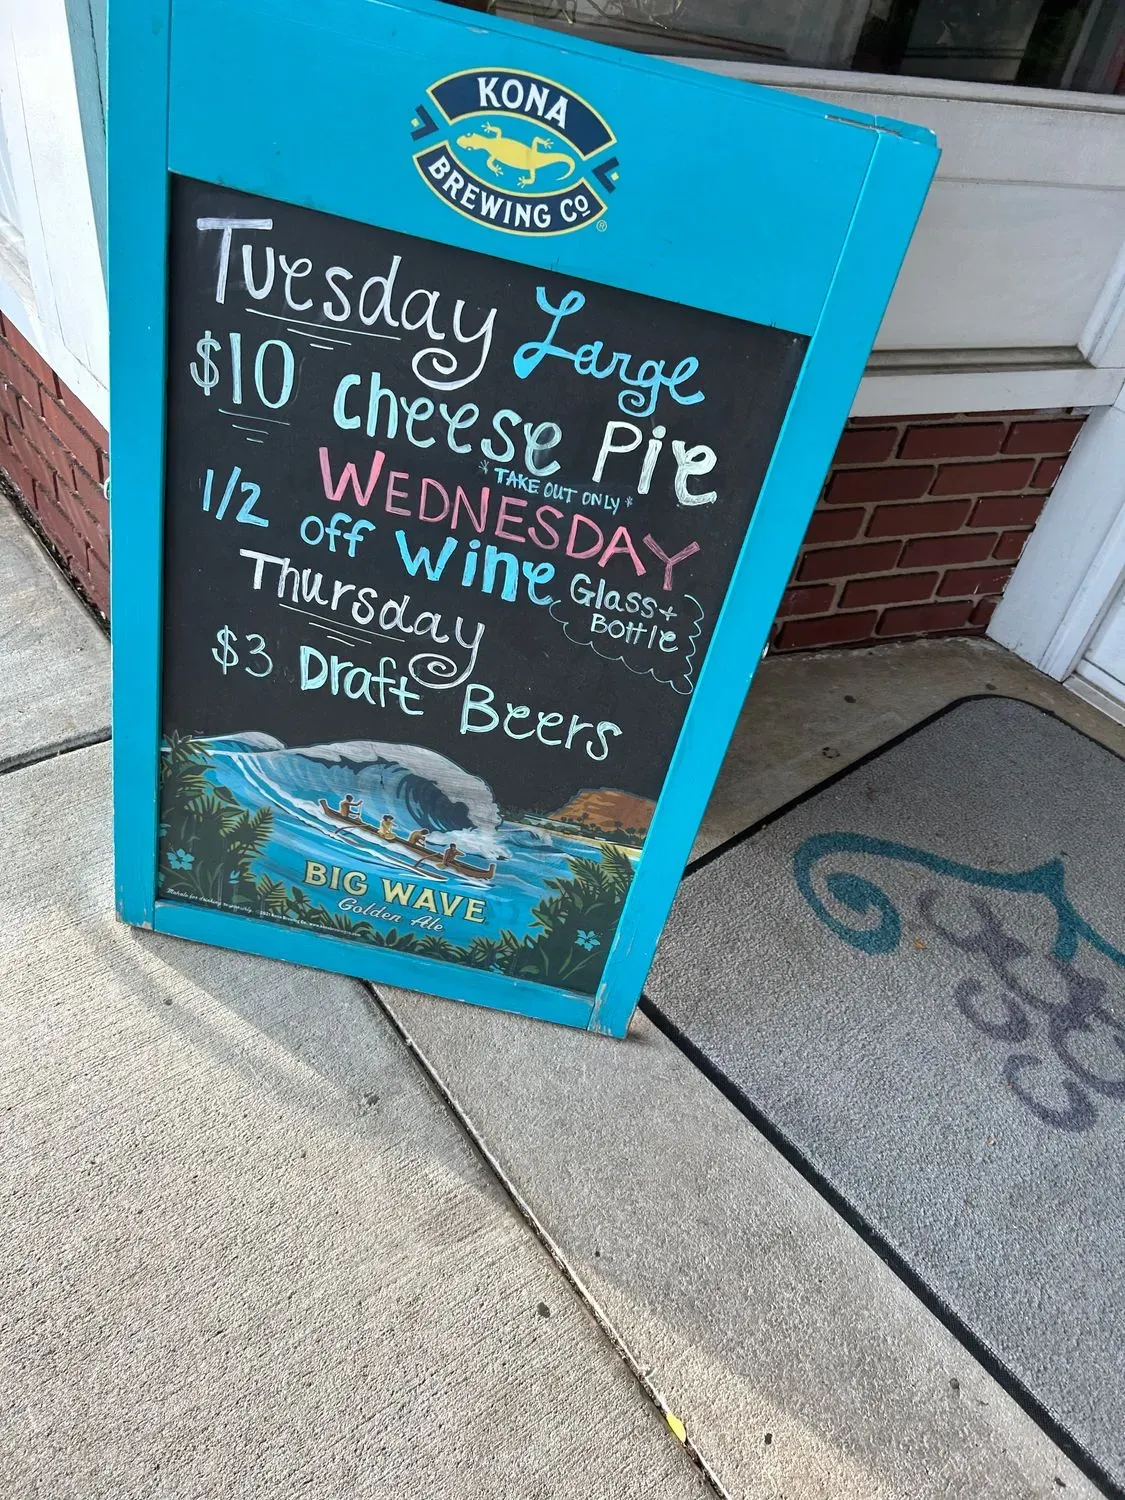 KONA
BREWING CO.
®
Tuesday Large
$10 Cheese Pie
* TAKE OUT ONLY *
WEDNESDAY
1/2 off Wine Glass +
Bottle
Thursday
$3 Draft Beers
BIG WAVE
Golden Ale